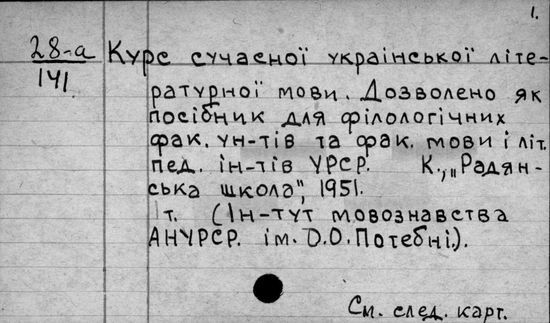 1.
28-а Курс сучасної української літе-
141
ратурної мови. Дозволено як
посібник для філологічних
фак. ун-тів та фак. мови і літ.
пед. ін-тів УРСР. К., „Радян-
ська школа", 1951.
т. (Ін-тут мовознавства
АНУРСР. ім. О.О. Потебні.).
См. след. карт.